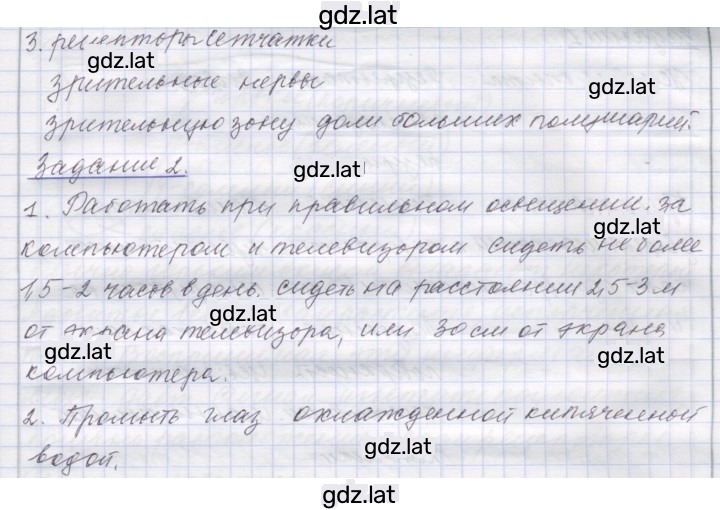 gdz.lat
3. рецепторы сетчатки
gdz.lat
зрительные нервы
gdz.lat
зрительную зону доли больших полушарий.
Задание 2.
gdz.lat
1. Работать при правильном освещении. за
gdz.lat
компьютером и телевизором сидеть не более
1,5-2 часов в день. сидеть на расстоянии 2,5-3 м
gdz.lat
от экрана телевизора, или 30 см от экрана
gdz.lat gdz.lat
компьютера.
2. Промыть глаз охлажденной кипяченной
gdz.lat
водой.
gdz.lat